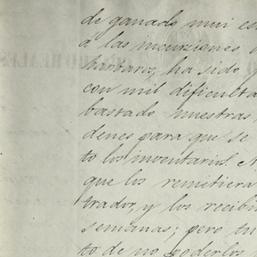 de ganado mui es
á las incursiones
bárbaros, ha sido
con mil dificulta
bastado nuestras
denes para que se
to los inventarios
que los remitiera
trador, y los recibi
semanas; pero tu
to de no poderlos